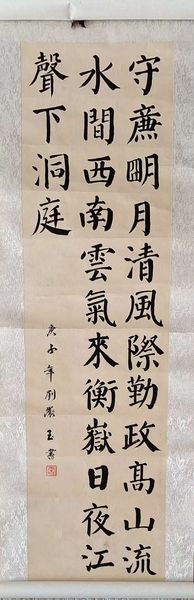 守廉明月清風際勤政高山流
水間西南雲氣來衡嶽日夜江
聲下洞庭
庚子年劉襲玉書